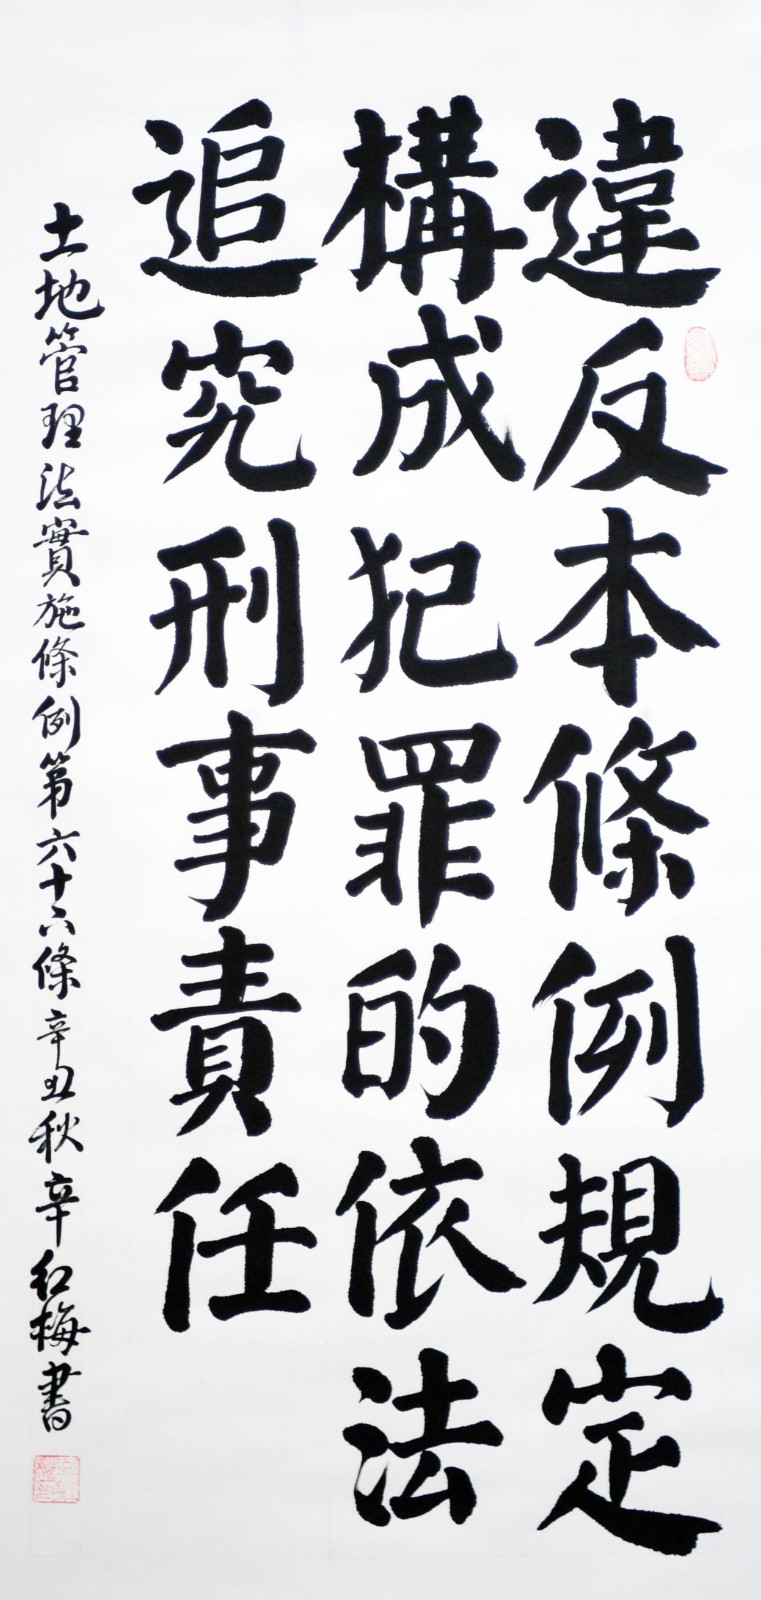 違反本條例規定
構成犯罪的依法
追究刑事責任
土地管理法實施條例第六十六條辛丑秋辛紅梅書